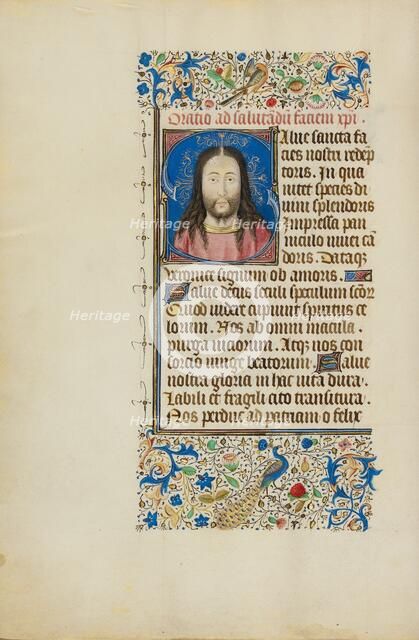 Oratio ad salutandū faciem xpi
Salue sancta fa
cies nostri redēp
toris. In qua
nitet species di
uini splendoris
Impressa pan
niculo niuei cā
doris. Dataqz
veronice signum ob amoris.
Salue decus seculi speculum scōr
Quod videre cupiunt spiritus ce
lorum. Nos ab omni macula
purga uiciorum. Atqz nos con
sorcio iunge beatorum. Salue
nostra gloria in hac uita dura.
Labili et fragili cito transitura.
Nos perduc ad patriam o felix
Heritage
Heritage
Heritage
Heritage